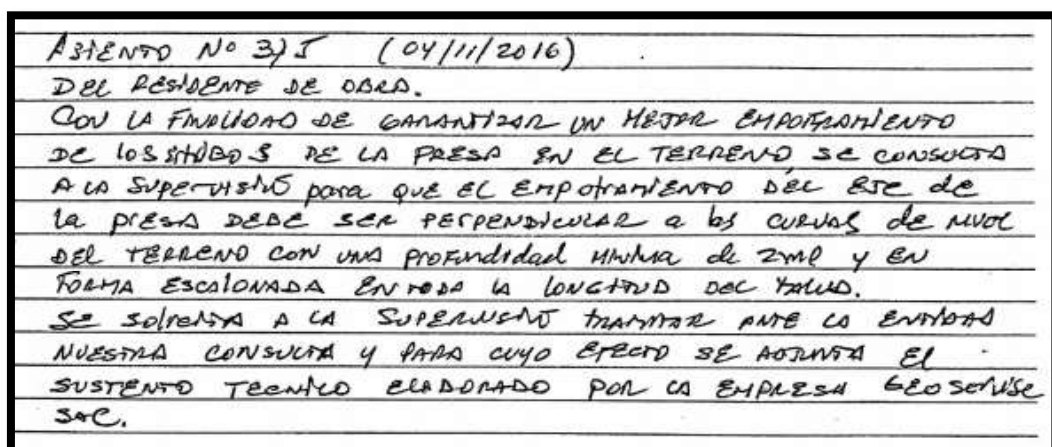 ASIENTO Nº 315 (04/11/2016)
DEL RESIDENTE DE OBRA.
CON LA FINALIDAD DE GARANTIZAR UN MEJOR EMPOTRAMIENTO
DE LOS ESTRIBOS DE LA PRESA EN EL TERRENO SE CONSULTA
A LA SUPERVISIÓ para QUE EL EMPOTRAMIENTO DEL EJE de
la PRESA DEBE SER PERPENDICULAR a las CURVAS de NIVEL
DEL TERRENO CON UNA PROFUNDIDAD MINIMA de 2ml y EN
FORMA ESCALONADA EN TODA LA LONGITUD DEL TALUD.
SE SOLICITA A LA SUPERVISIÓ TRAMITAR ANTE LA ENTIDAD
NUESTRA CONSULTA Y PARA CUYO EFECTO SE ADJUNTA El
SUSTENTO TECNICO ELABORADO POR LA EMPRESA GEOSERVISE
SAC.